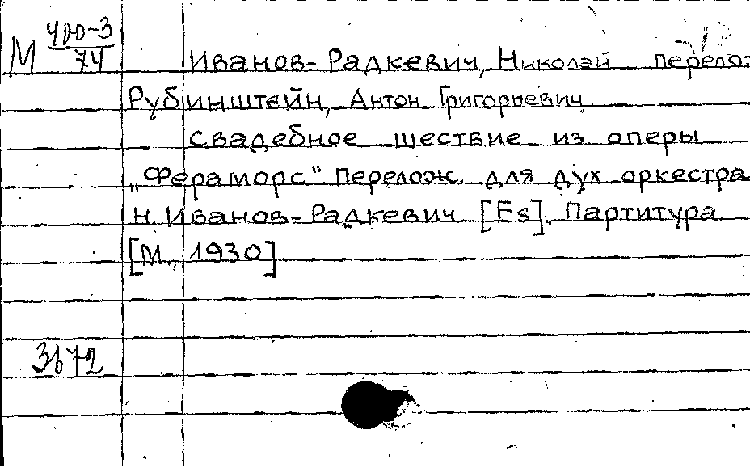 М 400-3/74
Иванов-Радкевич, Николай перело-
Рубинштейн, Антон Григорьевич
Свадебное шествие из оперы
„Фераморс" Перелож. для дух оркестра
Н. Иванов-Радкевич [Es]. Партитура
[М., 1930]